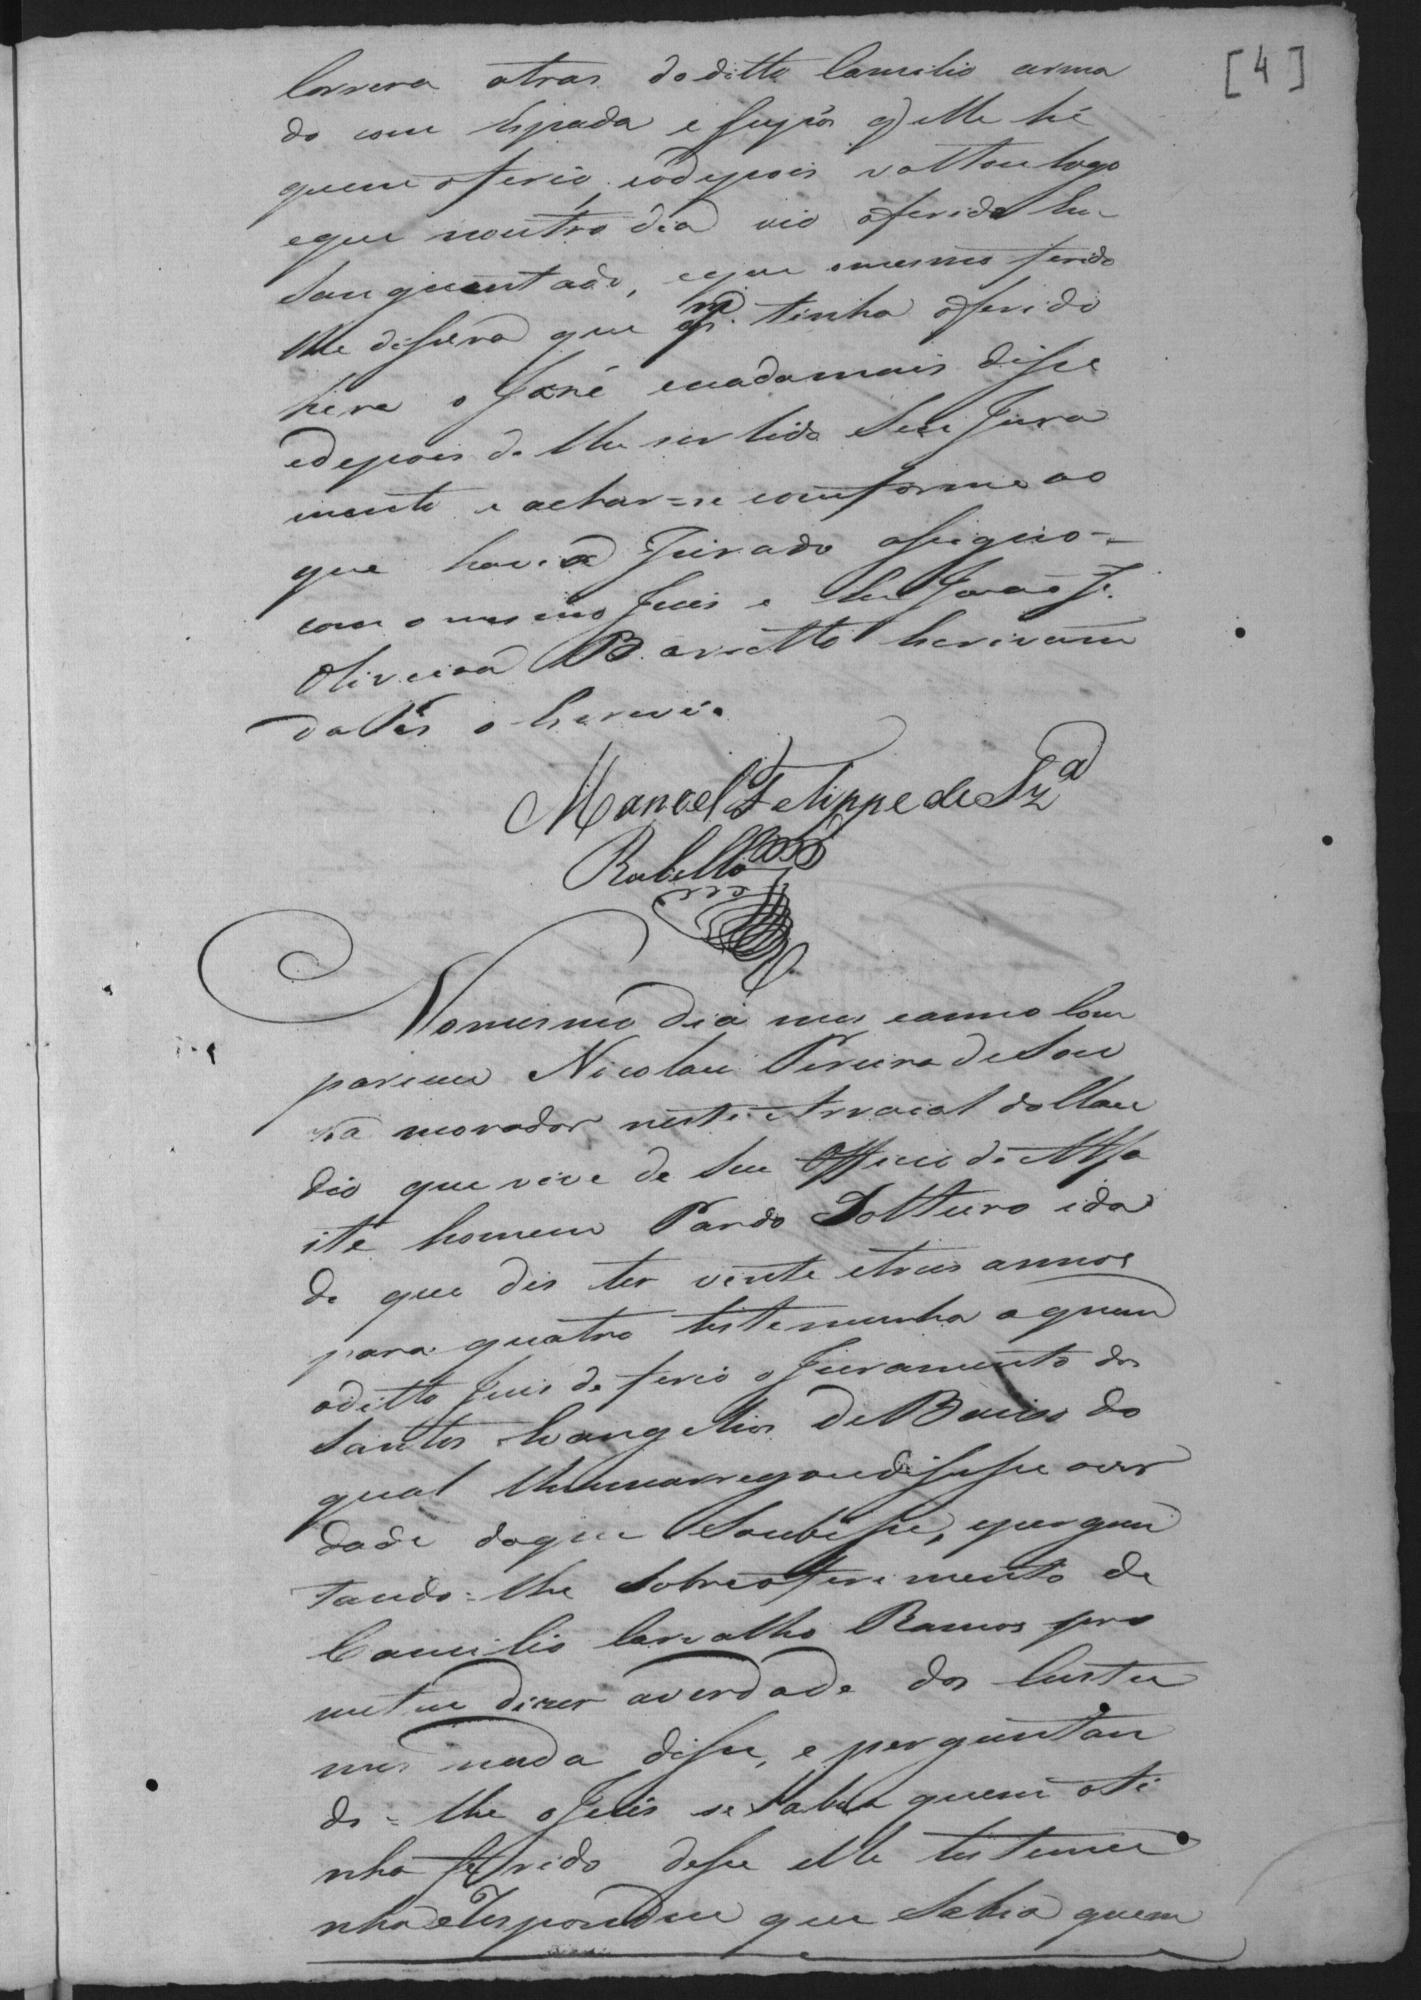 [4]
Correra atras do ditto Camilio arma
do com Espada e supos q elle hé
quem o ferio, e o depois voltou logo
e que noutro dia vio o ferido En-
sanguentado, e que o mesmo ferido
lhe dissera que qm. tinha o ferido
hera o José e nada mais disse
e depois de lhe ser lido Seu Jura
mento e achar-se comforme ao
que havia Jurado assignou-
com o mesmo Juis e Eu João Je.
Oliveira Barretto Escrivam
da Pás o Escrevi.
Manoel Felippe de Sza
Rabello
No mesmo dia mes e anno Com
pareceu Nicolau Pereira de Sou
za morador neste Arraial do Clau
dio que vive de Seu Officio de Alfa
ite homem Pardo Soltteiro ida
de que dis ter vinte e tres annos
para quatro testemunha a quem
o ditto Juis deferio o Juramento dos
Santos Evangelhos De Baixo do
qual lhe emcarregou dissesse a ver
dade do que Soubesse, e pergun
tando-lhe Sobre o ferimento de
Camilio Carvalho Ramos pro
meteu dizer a verdade dos Custu
mes nada disse, e perguntan
do-lhe o Juis se Sabia quem o ti
nha ferido desse elle testemu
nha e Respondeu que Sabia quem